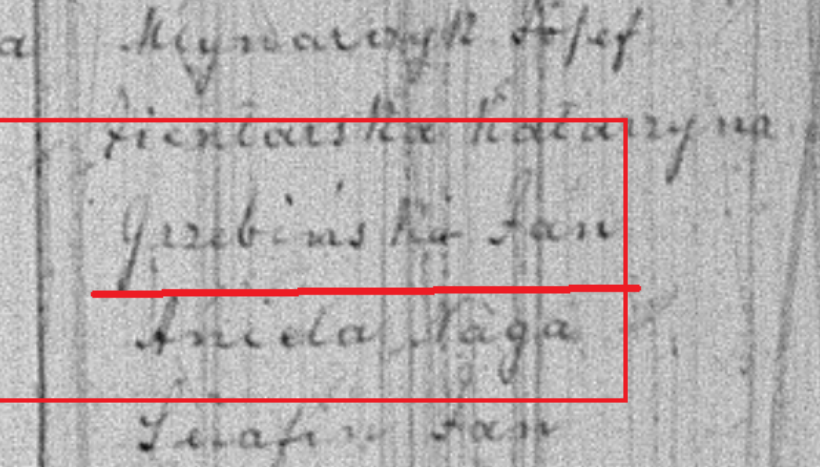 a Młynarczyk Józef
Zientarska Katarzyna
Grzebiński Jan
Aniela Naga
Serafin Jan